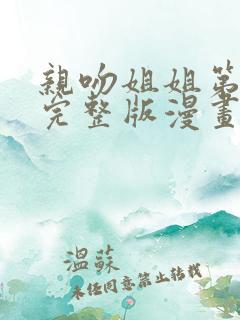 親吻姐姐第
完整版漫畫
溫蘇
未经同意禁止转载